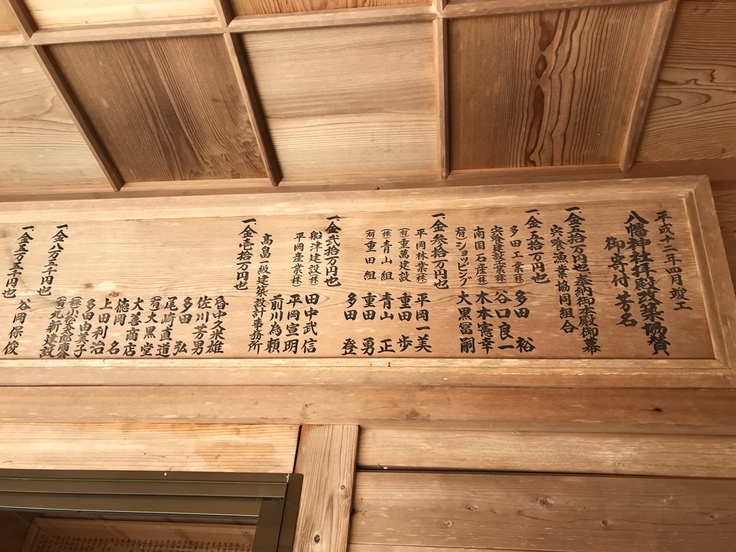 平成十二年四月竣工
八幡神社拝殿改築協賛
御寄付芳名
一金五拾万円也 案内御本殿御幕
宍喰漁業協同組合
一金五拾万円也
多田工業㈱ 多田裕
宍喰建設業㈱ 谷口良一
南国石産㈱ 木本憲幸
㈲ショッピング大黒 大黒冨嗣
一金参拾万円也
平岡林業㈱ 平岡一美
㈲重萬建設 重田歩
㈱青山組 青山正
㈲重田組 重田勇
多田登
一金弐拾万円也
船津建設㈱ 田中武信
平岡産業㈱ 平岡宣明
前川為頼
高島一級建築設計事務所
一金壱拾万円也
谷中久米雄
佐川芳男
多田弘
尾崎直道
㈲大黒堂
大善商店
徳岡名
上田利治
多田由美子
一金八万五千円也
㈲丸新建設
一金五万五千円也
谷岡保俊